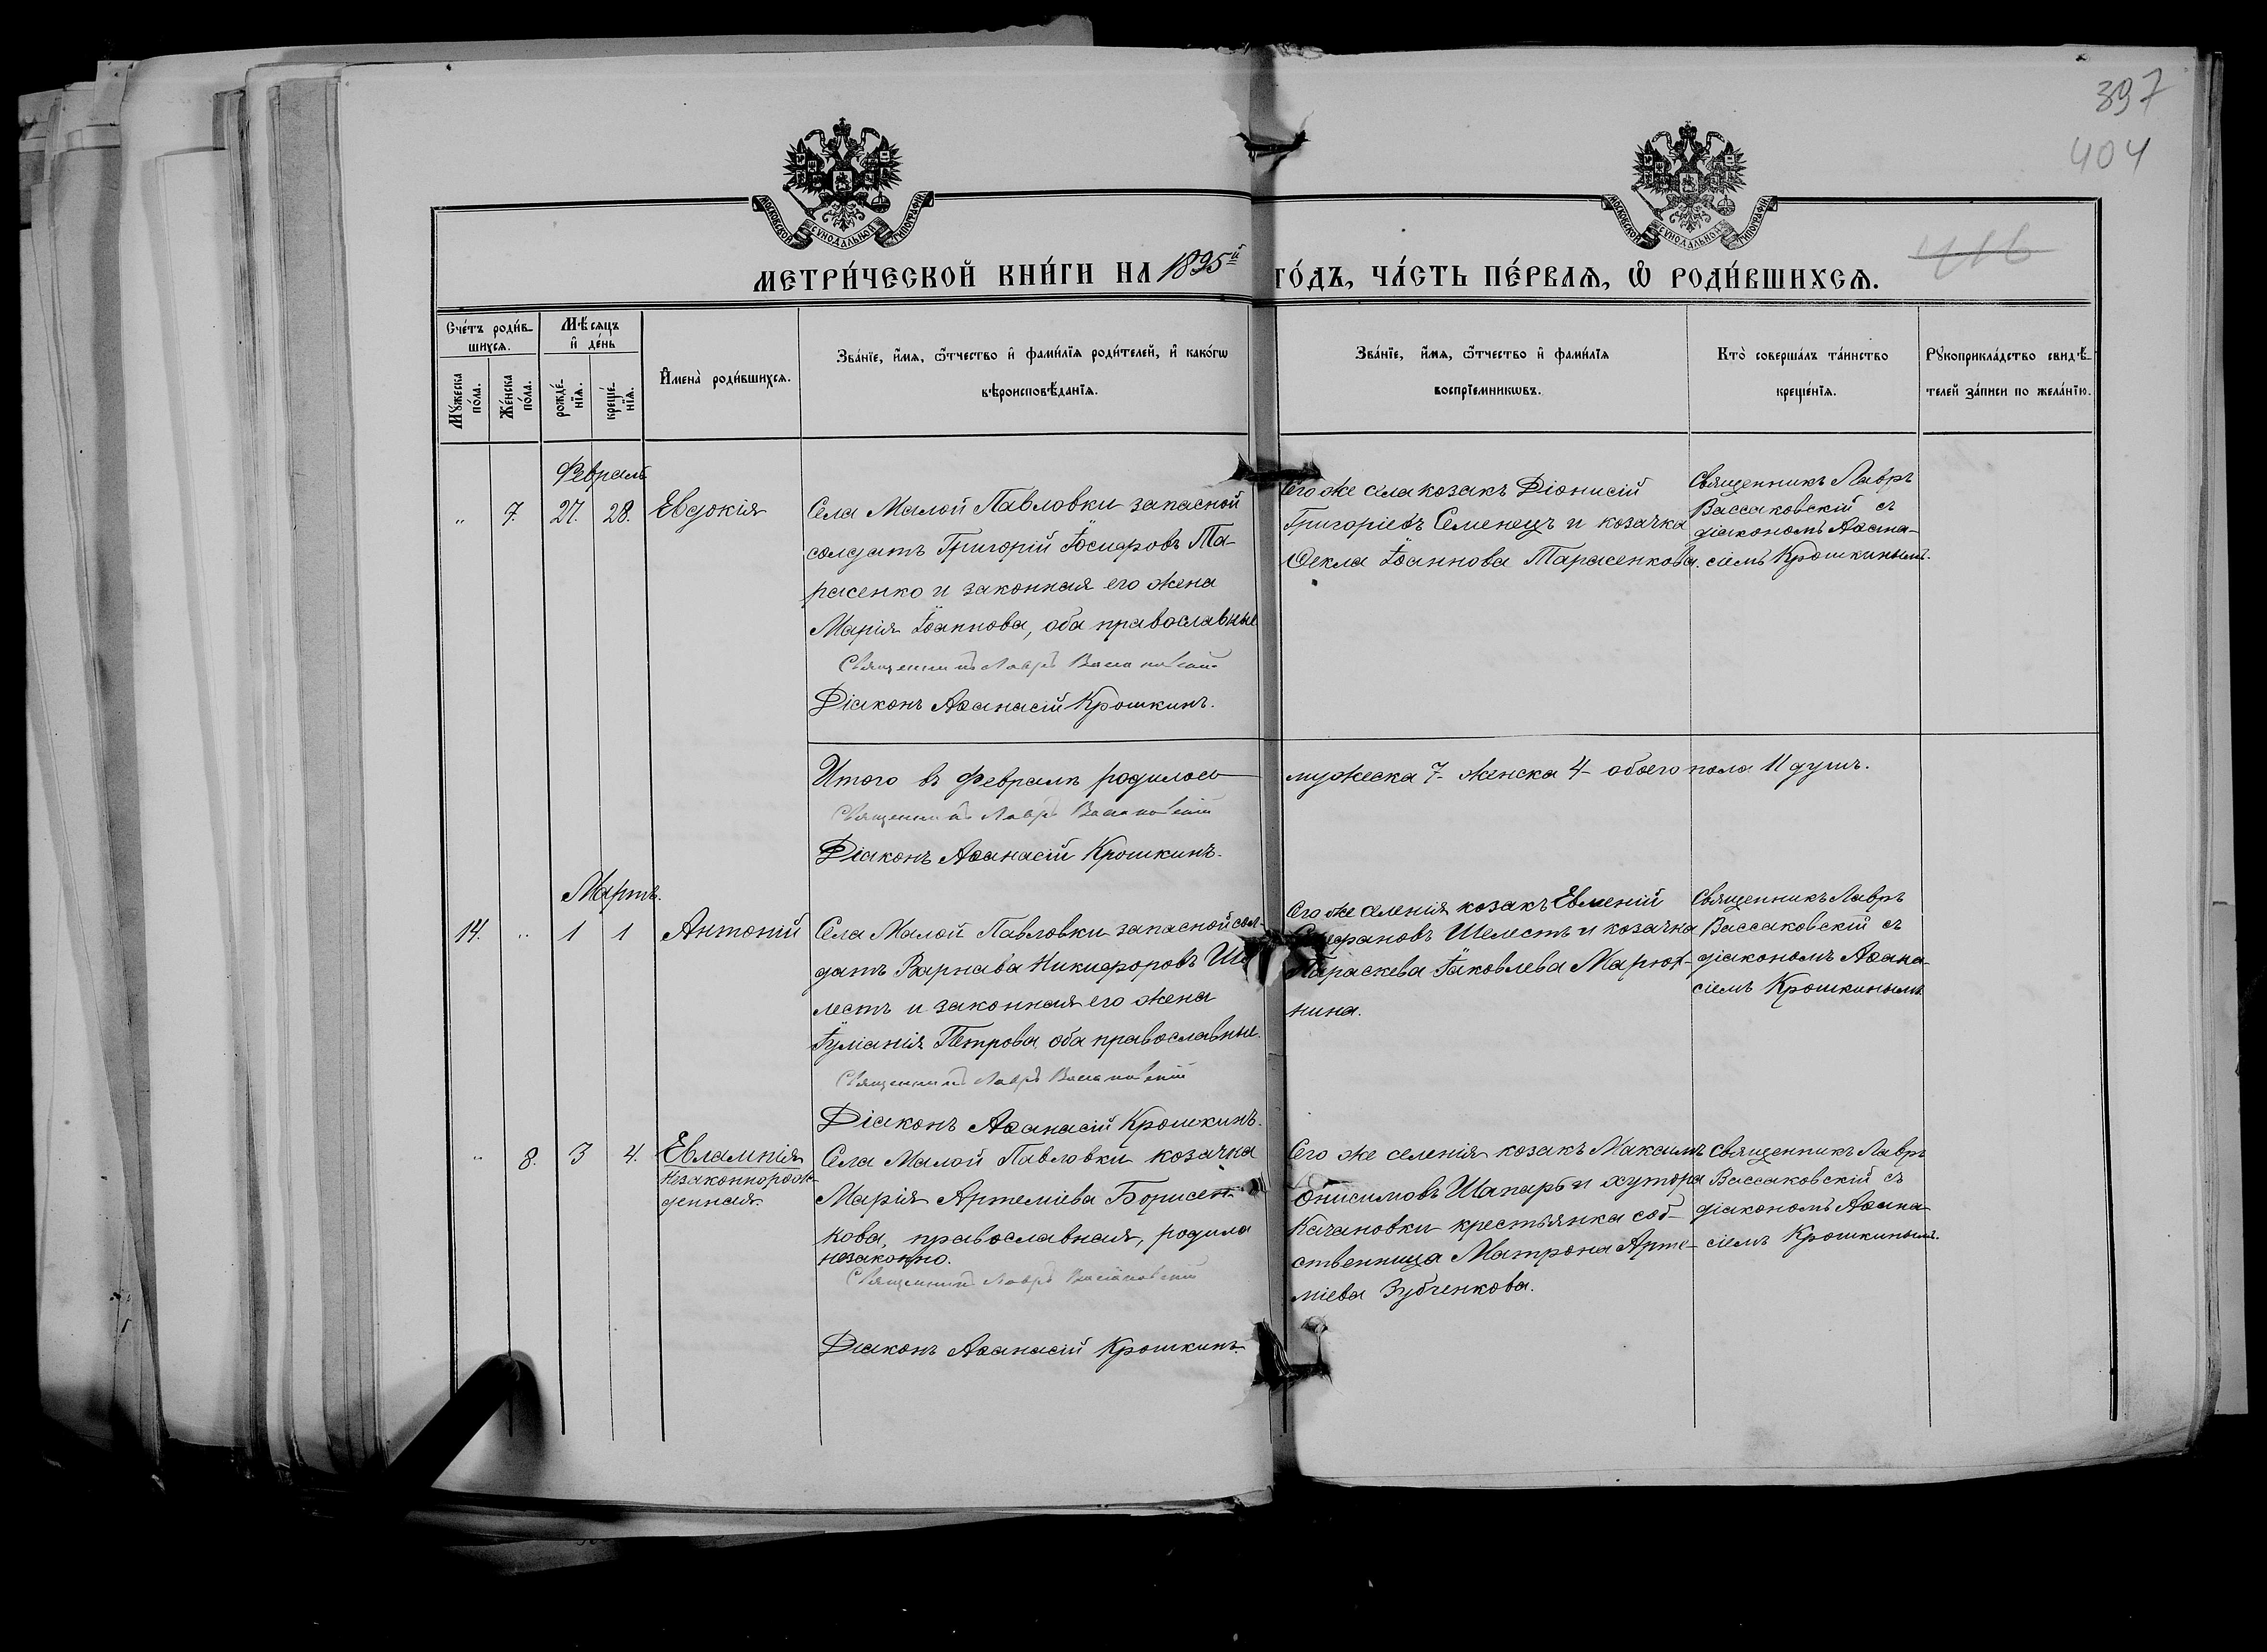 397
404
416
МОСКОВСКОЙ СУНОДАЛЬНОЙ ТИПОГРАФИИ
МОСКОВСКОЙ СУНОДАЛЬНОЙ ТИПОГРАФИИ
МЕТРИ́ЧЕСКОЙ КНИ́ГИ НА 1895й ГО́ДЪ, ЧА́СТЬ ПЕ́РВАЯ, Ѡ РОДИ́ВШИХСѦ.
Сче́тъ роди́в-
шихсѧ.
Мꙋжеска по́ла.
Же́нска по́ла.
Мѣ́сѧцъ
и де́нь
рожде́-
нїѧ.
креще́-
нїѧ.
Имена̀ роди́вшихсѧ.
Зва́нїе, и́мѧ, ѻ́тчество и фами́лїѧ роди́телей, и како́гѡ
вѣроисповѣ́данїѧ.
Зва́нїе, и́мѧ, ѻ́тчество и фами́лїѧ
воспрїемникѡвъ.
Кто̀ соверша́лъ та́инство
креще́нїѧ.
Рꙋкоприкла́дство свидѣ́-
телей за́писи по жела́нїю.
Февраль
„ 7. 27. 28. Евдокія
Села Малой Павловки запасной
солдатъ Григорій Іосифовъ Та-
расенко и законная его жена
Марія Іоаннова, оба православные
Священникъ Лавръ Вассаковскій
Діаконъ Аѳанасій Крошкинъ.
Его же села козакъ Діонисій
Григоріевъ Семенецъ и козачка
Ѳекла Іоаннова Тарасенкова.
Священникъ Лавръ
Вассаковскій съ
діакономъ Аѳана-
сіемъ Крошкинымъ.
Итого въ Февралѣ родилось мужеска 7- женска 4- обоего пола 11 душъ.
Священникъ Лавръ Вассаковскій
Діаконъ Аѳанасій Крошкинъ.
Мартъ.
14. „ 1 1 Антоній
Села Малой Павловки запасной сол-
датъ Варнава Никифоровъ Ше
лестъ и законная его жена
Іуліанія Петрова, оба православные.
Священникъ Лавръ Вассаковскій
Діаконъ Аѳанасій Крошкинъ.
Того же селенія козакъ Евменій
Стефановъ Шелестъ и козачка
Параскева Іаковлева Марют-
кина.
Священникъ Лавръ
Вассаковскій съ
діакономъ Аѳана-
сіемъ Крошкинымъ
„ 8. 3 4. Евлампія
Незаконнорож-
денная.
Села Малой Павловки козачка
Марія Артеміева Борисен-
кова, православная, родила
незаконно.
Священникъ Лавръ Вассаковскій
Діаконъ Аѳанасій Крошкинъ.
Того же селенія козакъ Максимъ
Онисимовъ Шапарь и хутора
Качановки крестьянка соб-
ственница Матрона Арте-
міева Зубченкова.
Священникъ Лавръ
Вассаковскій съ
діакономъ Аѳана-
сіемъ Крошкинымъ.